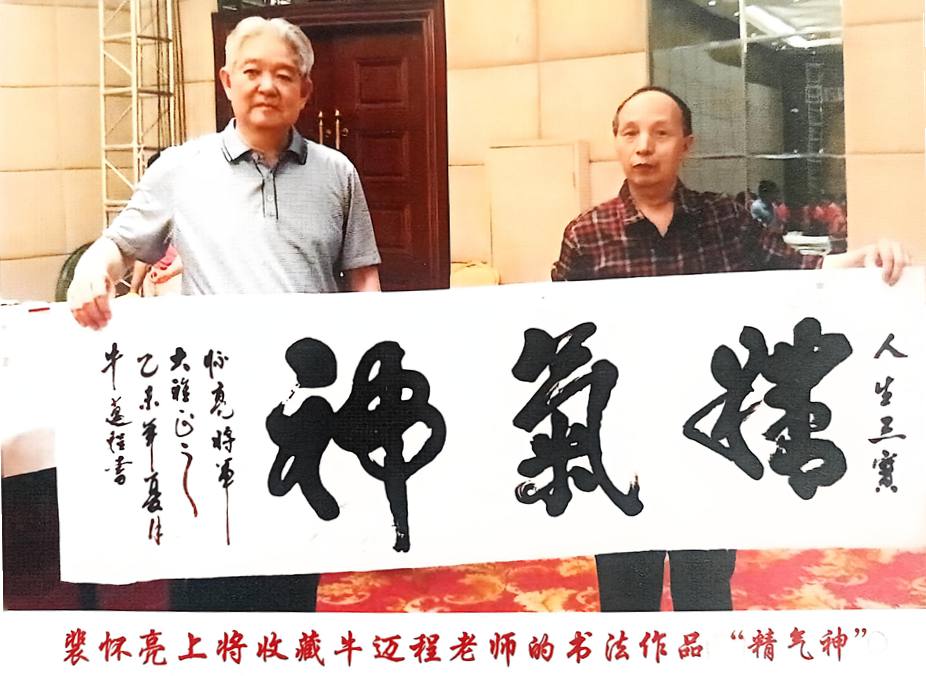 人生三寶
精氣神
怀亮将军
大雅正之
乙未年夏月
牛邁程書
裴怀亮上将收藏牛迈程老师的书法作品“精气神”